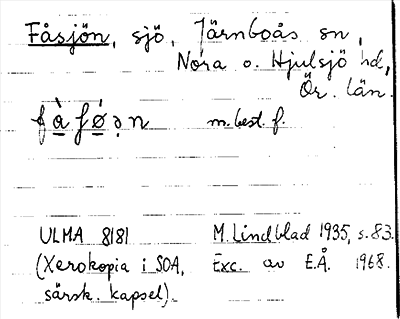 Fåsjön, sjö, Järnboås sn,
Nora o. Hjulsjö hd,
Ör. län.
m. best. f.
ULMA 8181 M Lindblad 1935, s. 83.
(Xerokopia i SOA, Exc. av E.Å. 1968.
särsk. kapsel).